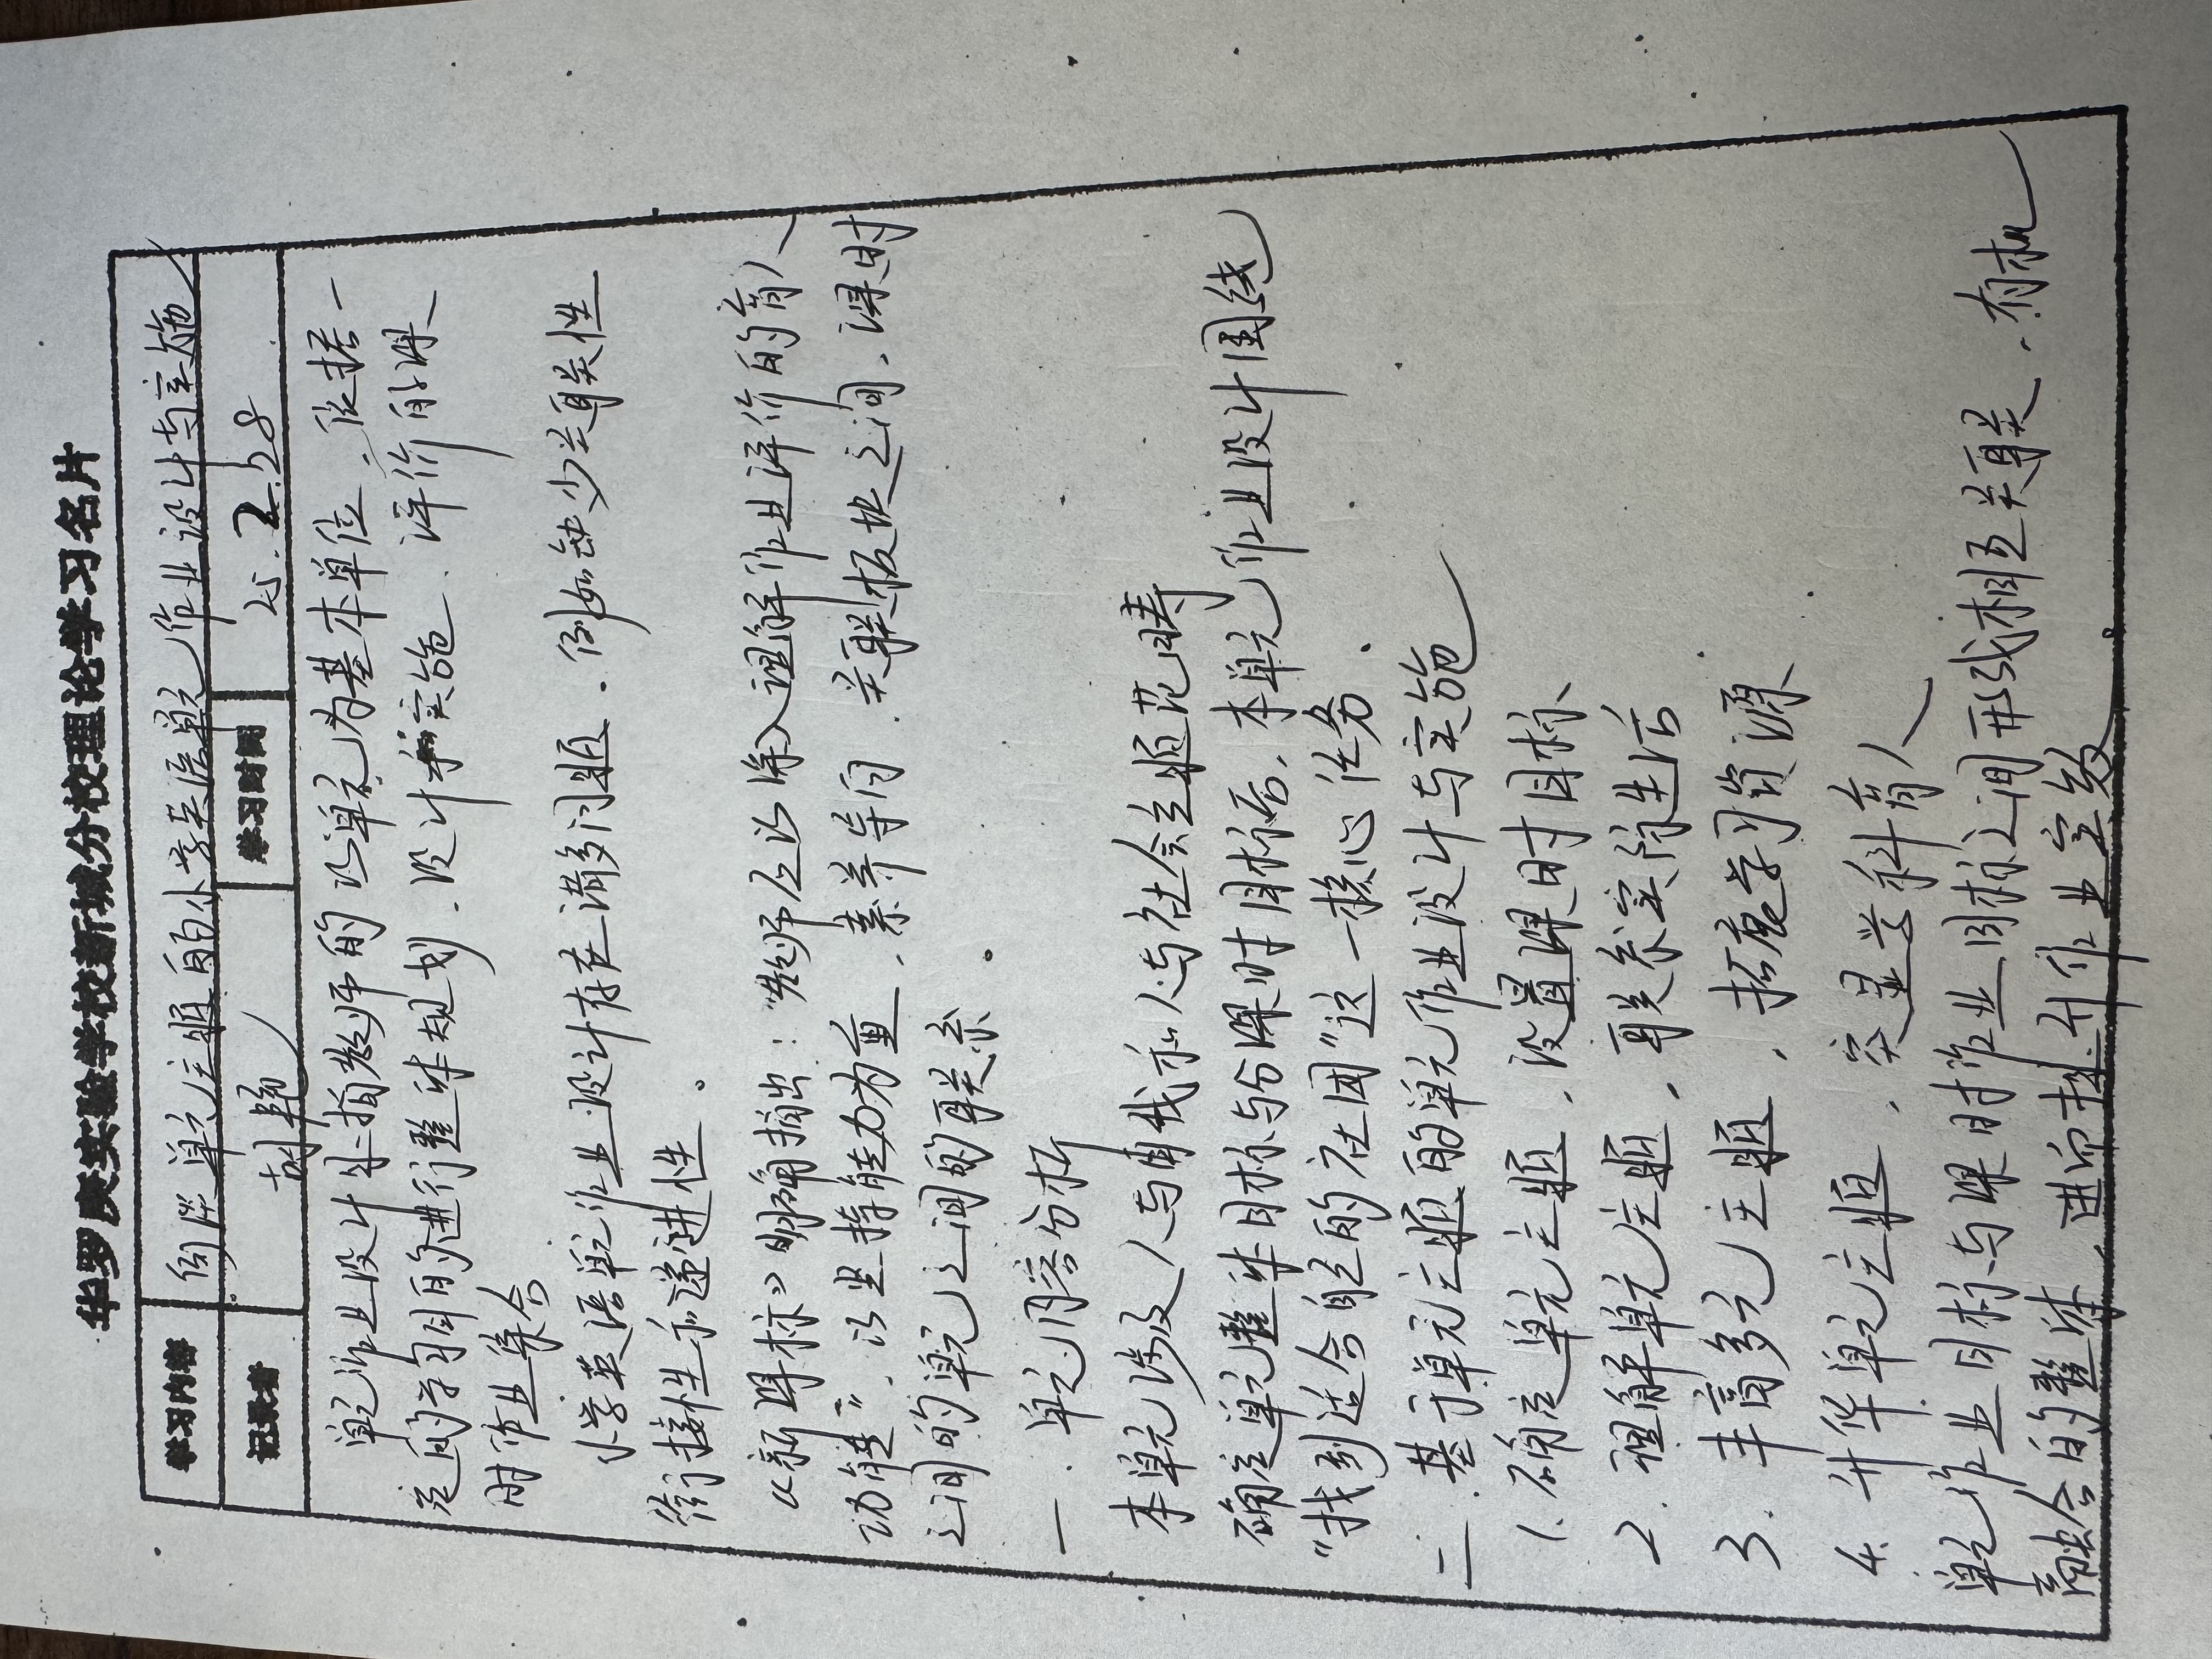 华罗庚实验学校新城分校理论学习名片
学习内容 单元主题的小学英语单元作业设计与实施
记录者 胡艳 学习时间 25.2.28
单元作业设计是指教师的以单元为基本单位,依据一
定的学习目的进行整体规划、设计和实施、评价的课
时作业集合
小学英语单元作业设计存在诸多问题、例如缺少关联性
衔接性和递进性。
《新课标》明确指出:“教师应该深入理解作业评价的育人
功能”,以坚持能力为重,素养导向.关联板块之间、课时
之间的单元之间的联系。
一、单元内容分析
本单元涉及人与自我和人与社会主题范畴
确定单元整体目标与分课时目标后,本单元作业设计围绕
“找到适合自己的社团”这一核心任务.
二、基于单元主题的单元作业设计与实施
1.确定单元主题,设置课时目标
2.理解单元主题,联系实际生活
3.丰富多元主题,拓展学习资源
4.升华单元主题,突显学科育人
单元作业目标与课时作业目标之间形成相互关联、有机
融合的整体,进而提升作业实效